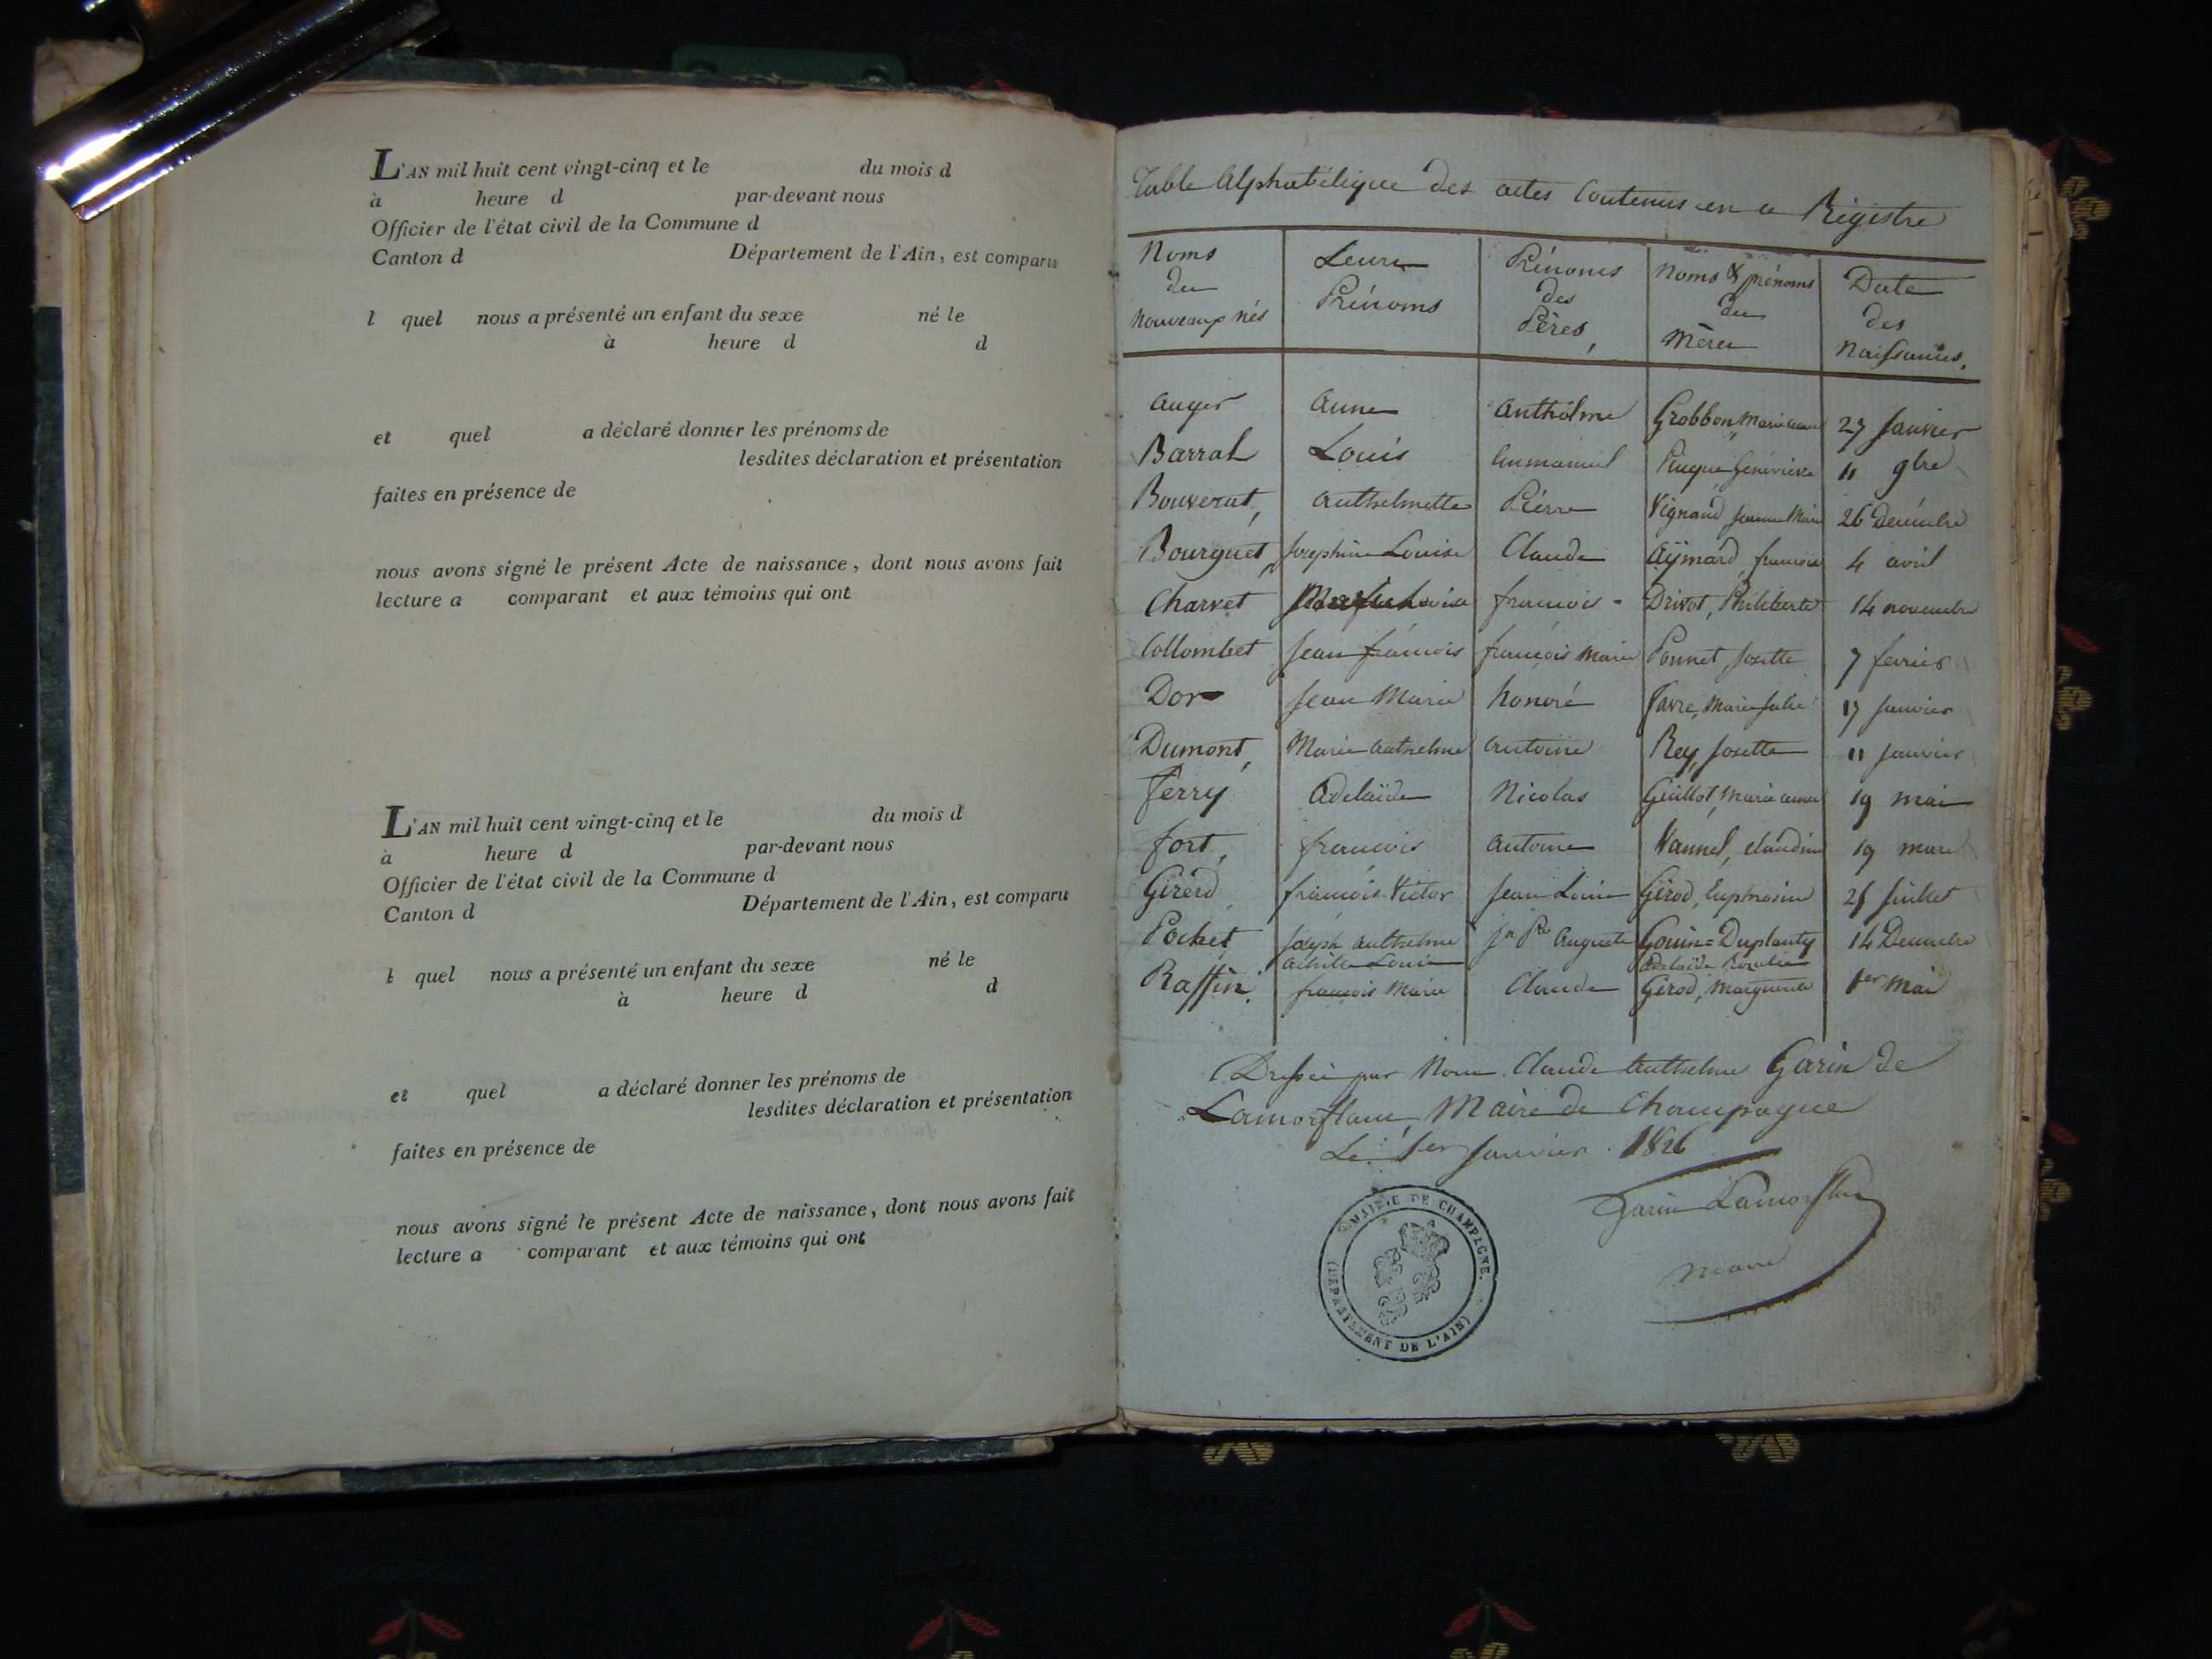 L'AN mil huit cent vingt-cinq et le du mois d
à heure d par-devant nous
Officier de l'état civil de la Commune d
Canton d Département de l'Ain, est comparu
l quel nous a présenté un enfant du sexe né le
à heure d d
et quel a déclaré donner les prénoms de
lesdites déclaration et présentation
faites en présence de
nous avons signé le présent Acte de naissance, dont nous avons fait
lecture a comparant et aux témoins qui ont
L'AN mil huit cent vingt-cinq et le du mois d
à heure d par-devant nous
Officier de l'état civil de la Commune d
Canton d Département de l'Ain, est comparu
l quel nous a présenté un enfant du sexe né le
à heure d d
et quel a déclaré donner les prénoms de
lesdites déclaration et présentation
faites en présence de
nous avons signé le présent Acte de naissance, dont nous avons fait
lecture a comparant et aux témoins qui ont
Table Alphabétique des actes Contenus en ce Régistre
Noms des nouveaux nés
Leurs Prénoms
Prénoms des Pères,
Noms & prénoms des Mères
Date des Naissances.
Auger Anne Anthelme Grobbon, Marie anne 27 Janvier
Barral Louis Emmanuel Genevieve 11 9bre
Bouverat, Anthelmette Pierre Vignaud Jeanne Marie 26 Decembre
Bourguet, Josephine Louise Claude Aÿmard, francoise 4 avril
Charvet Louise francois - Drivot, Philiberte 14 novembre
Collombet Jean françois françois Marie Ponnet, Josette 7 fevrier
Dor Jean Marie honoré Favre, Marie Julie 17 Janvier
Dumont, Marie Anthelme Antoine Rey, Josette 11 Janvier
Ferry Adelaïde Nicolas Guillot, Marie anne 19 mai
fort, francois Antoine Vannel, claudine 19 mars
Girerd, francois Victor Jean Louis Girod, Euphrosine 21 Juillet
Pochet Joseph Anthelme Achille Louis Auguste Gouin=Duplanty Adelaïde Rosalie 14 Decembre
Raffin, francois Marie Claude Girod, Marguerite 1er Mai
Dressée par Nous Claude Anthelme Garin de
Lamorflanc, Maire de Champagne
Le 1er Janvier 1826
Garin Lamorflanc
maire
MAIRIE DE CHAMPAGNE.
(DEPARTEMENT DE L'AIN)